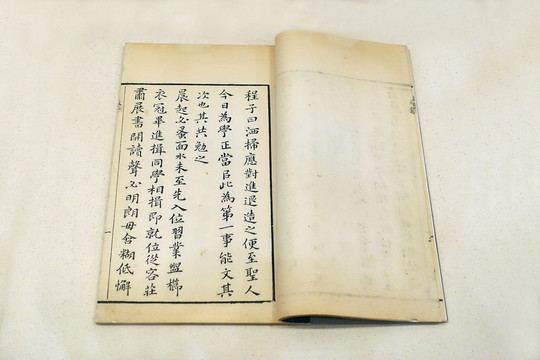 程子曰洒掃應對進退造之便至聖人
今日為學正當以此為第一事能文其
次也其共勉之
晨起必蚤面水未至先入位習業盥櫛
衣冠畢進揖同學相揖即就位從容莊
肅展書開讀聲必明朗毋含糊低懈